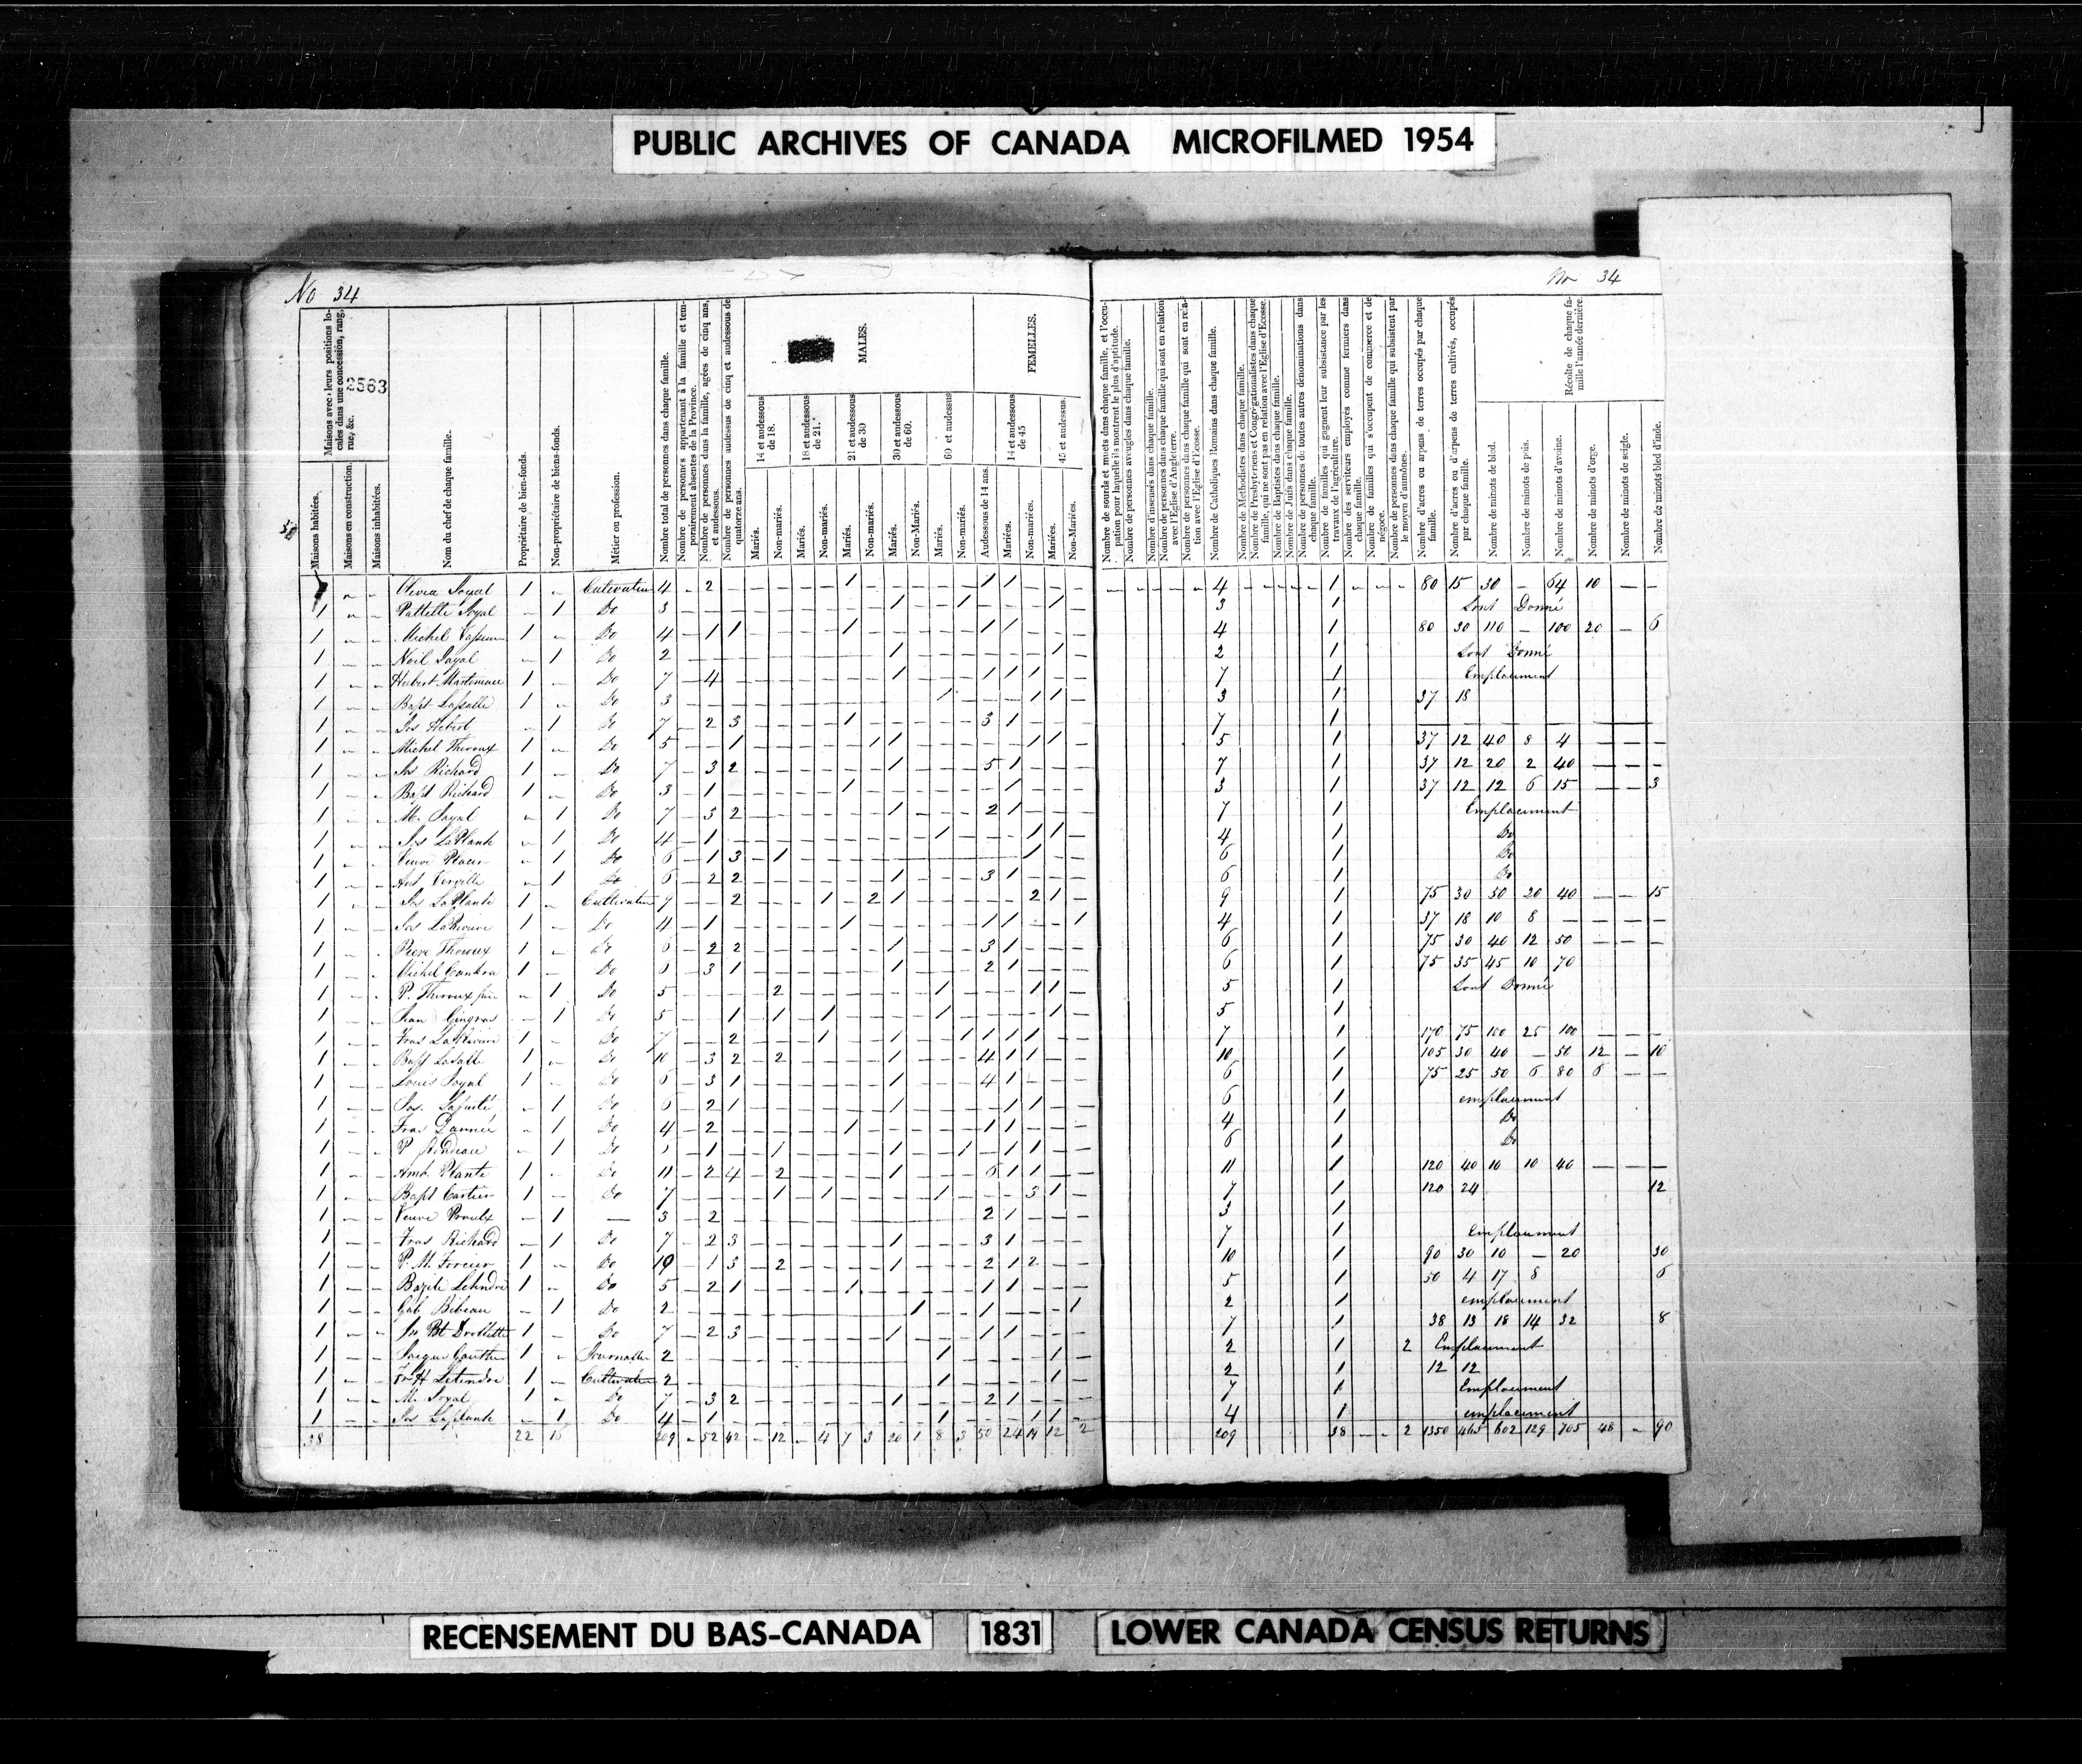 PUBLIC ARCHIVES OF CANADA MICROFILMED 1954
No 34
No 34
Maisons avec leurs positions locales dans une concession, rang, rue, &c.
2563
Maisons habitées.
Maisons en construction.
Maisons inhabitées.
Nom du chef de chaque famille.
Propriétaire de bien-fonds.
Non-propriétaire de biens-fonds.
Métier ou profession.
Nombre total de personnes dans chaque famille.
Nombre de personnes appartenant à la famille et temporairement absentes de la Province.
Nombre de personnes dans la famille, agées de cinq ans, et audessous.
Nombre de personnes audessus de cinq et audessous de quatorze ans.
MALES.
14 et audessous de 18.
Mariés.
Non-mariés.
18 et audessous de 21.
Mariés.
Non-mariés.
21 et audessous de 30
Mariés.
Non-mariés.
30 et audessous de 60.
Mariés.
Non-Mariés.
60 et audessus
Mariés.
Non-mariés.
FEMELLES.
Audessous de 14 ans.
14 et audessous de 45
Mariées.
Non-mariées.
45 et audessus.
Mariées.
Non-Mariées.
Nombre de sourds et muets dans chaque famille, et l'occupation pour laquelle ils montrent le plus d'aptitude.
Nombre de personnes aveugles dans chaque famille.
Nombre d'insensés dans chaque famille.
Nombre de personnes dans chaque famille qui sont en relation avec l'Eglise d'Angleterre.
Nombre de personnes dans chaque famille qui sont en relation avec l'Eglise d'Ecosse.
Nombre de Catholiques Romains dans chaque famille.
Nombre de Methodistes dans chaque famille.
Nombre de Presbyteriens et Congrégationalistes dans chaque famille, qui ne sont pas en relation avec l'Eglise d'Ecosse.
Nombre de Baptistes dans chaque famille.
Nombre de Juifs dans chaque famille.
Nombre de personnes de toutes autres dénominations dans chaque famille.
Nombre de familles qui gagnent leur subsistance par les travaux de l'agriculture.
Nombre des serviteurs employés comme fermiers dans chaque famille.
Nombre de familles qui s'occupent de commerce et de négoce.
Nombre de personnes dans chaque famille qui subsistent par le moyen d'aumônes.
Nombre d'acres ou arpens de terres occupés par chaque famille.
Nombre d'acres ou d'arpens de terres cultivés, occupés par chaque famille.
Récolte de chaque famille l'année dernière.
Nombre de minots de bled.
Nombre de minots de pois.
Nombre de minots d'avoine.
Nombre de minots d'orge.
Nombre de minots de seigle.
Nombre de minots bled d'inde.
1 Cultivateur 4 - 2 1 1 1 4 1 80 15 30 - 64 10 - -
1 1 Do 3 1 1 1 3 1 Sont Donné
1 Michel 1 Do 4 1 1 1 1 1 4 1 80 30 110 - 100 20 - 6
1 1 Do 2 1 1 2 1 Sont Donné
1 Hubert 1 Do 7 4 1 1 1 1 7 1 Emplacement
1 Bapt 1 Do 3 1 1 1 3 1 37 18
1 Jos Hebert 1 Do 7 2 3 1 3 1 7 1
1 Michel Theroux 1 Do 5 1 1 1 1 1 5 1 37 12 40 8 4 - - -
1 Jos Richard 1 Do 7 3 2 1 5 1 7 1 37 12 20 2 40 - - -
1 Bapt Richard 1 Do 3 1 1 1 3 1 37 12 12 6 15 - - 3
1 M. 1 Do 7 3 2 1 2 1 7 1 Emplacement
1 Jos LaPlante 1 Do 4 1 1 1 1 4 1 Do
1 Veuve 1 Do 6 1 3 1 1 6 1 Do
1 Ant. 1 Do 6 2 2 1 3 1 6 1 Do
1 Jos LaPlante 1 Cultivateur 9 2 1 2 1 2 1 9 1 75 30 50 20 40 - - 15
1 Jos LaRiviere 1 Do 4 1 1 1 1 1 4 1 37 18 10 8 - - - -
1 Pierre Theroux 1 Do 6 2 2 1 3 1 6 1 75 30 40 12 50 - - -
1 Michel 1 Do 6 3 1 1 2 1 6 1 75 35 45 10 70
1 P. Theroux 1 Do 5 2 1 1 1 5 1 Sont Donné
1 Jean Gingras 1 Do 5 1 1 1 1 1 5 1
1 Fras LaRiviere 1 Do 7 2 1 1 1 1 1 1 7 1 170 75 100 25 100 - -
1 Bapt LaSalle 1 Do 10 3 2 2 1 4 1 1 10 1 105 30 40 - 50 12 - 10
1 Louis 1 Do 6 3 1 1 4 1 6 1 75 25 50 6 80 6 - -
1 Jos. 1 Do 6 2 1 1 1 1 6 1 emplacement
1 Fras 1 Do 4 2 1 1 1 4 1 Do
1 P 1 Do 1 1 1 1 1 1 6 1 Do
1 Amb. Plante 1 Do 11 2 4 2 1 6 1 1 11 1 120 40 10 10 40 - - -
1 Bapt Cartier 1 Do 7 1 1 1 3 1 7 1 120 24 12
1 Veuve Proulx 1 - 3 2 2 1 3 1
1 Fras Richard 1 Do 7 2 3 1 3 1 7 1 Emplacement
1 P. M. 1 Do 10 1 3 2 1 2 1 2 10 1 90 30 10 - 20 30
1 Letendre 1 Do 5 2 1 1 1 1 5 1 50 4 17 8 6
1 Gab Bibeau 1 Do 2 1 1 1 2 1 emplacement
1 Jn Bt 1 Do 7 2 3 1 1 1 7 1 38 13 18 14 32 8
1 1 Journalier 2 1 1 2 1 2 Emplacement
1 Letendre 1 Cultivateur 2 1 1 2 1 12 12
1 M. 1 Do 7 3 2 1 2 1 7 1 Emplacement
1 Jos Laplante 1 Do 4 1 1 1 1 4 1 emplacement
38 22 16 209 - 52 42 - 12 - 4 7 3 20 1 8 3 50 24 12 2 209 38 - - 2 1350 463 602 129 705 48 - 90
RECENSEMENT DU BAS-CANADA 1831 LOWER CANADA CENSUS RETURNS